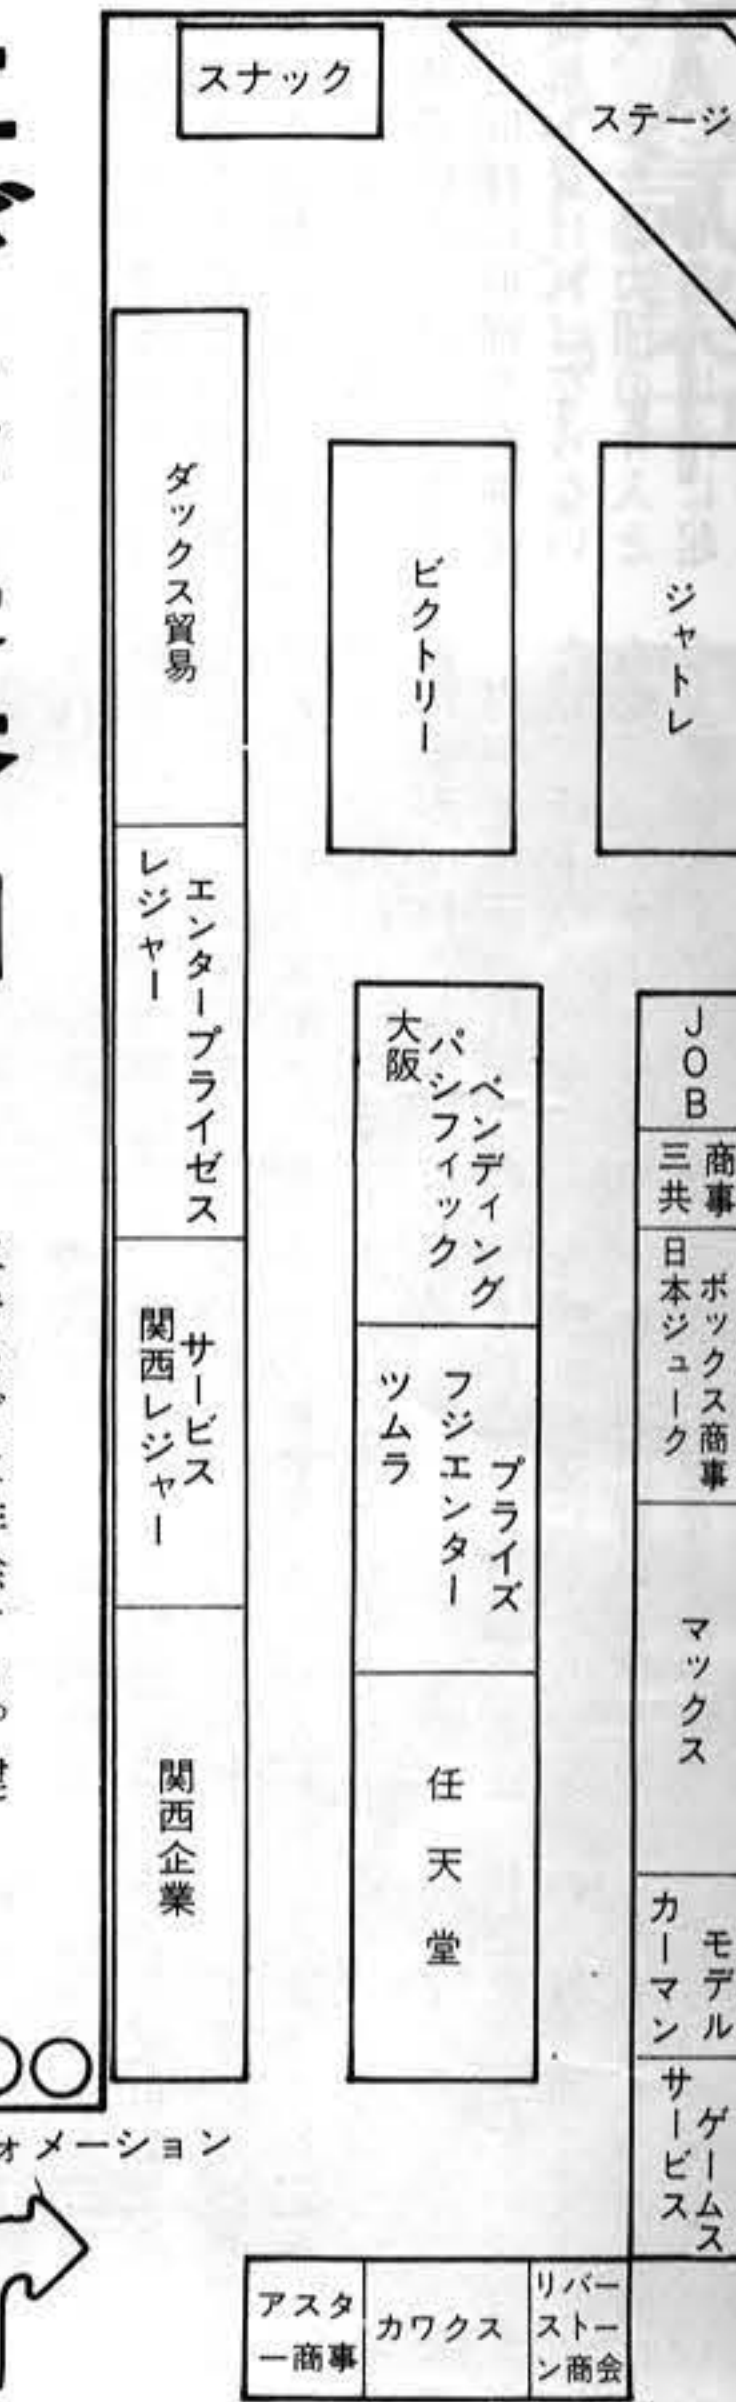 スナック
ステージ
ダックス貿易
ビクトリー
ジャトレ
レジャー
エンタープライゼス
大阪
パシフィック
ベンディング
JOB
三共
商事
日本ジューク
ボックス商事
関西レジャー
サービス
ツムラ
フジエンター
プライズ
マックス
関西企業
任天堂
カーマン
モデル
サービス
ゲームス
ォメーション
アスタ
ー商事
カワクス
リバー
ストー
ン商会